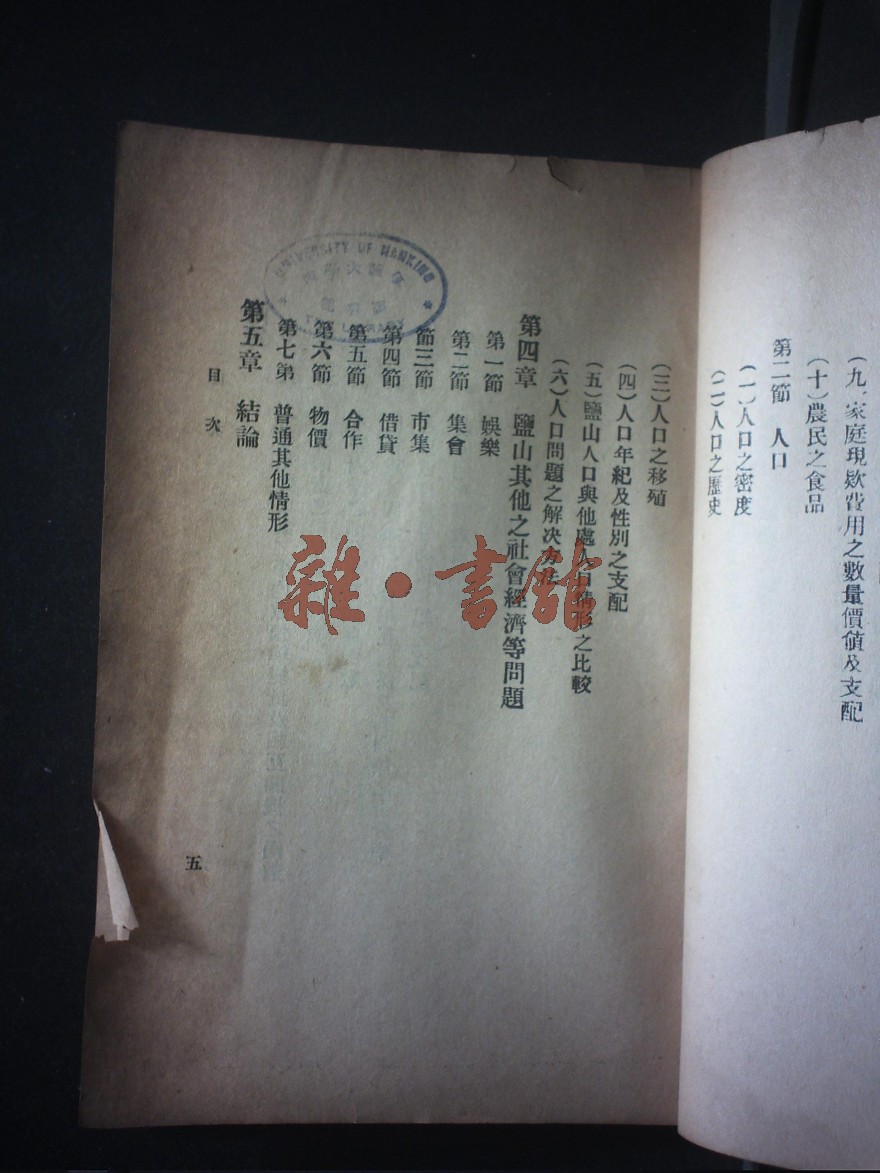 (九)家庭現欵費用之數量價値及支配
(十)農民之食品
第二節 人口
(一)人口之密度
(二)人口之歷史
(三)人口之移殖
(四)人口年紀及性別之支配
(五)鹽山人口與他處人口情形之比較
(六)人口問題之解决方法
第四章 鹽山其他之社會經濟等問題
第一節 娛樂
第二節 集會
節三節 市集
第四節 借貸
第五節 合作
第六節 物價
第七第 普通其他情形
第五章 結論
目次
五
UNIVERSITY OF NANKING
雜·書館